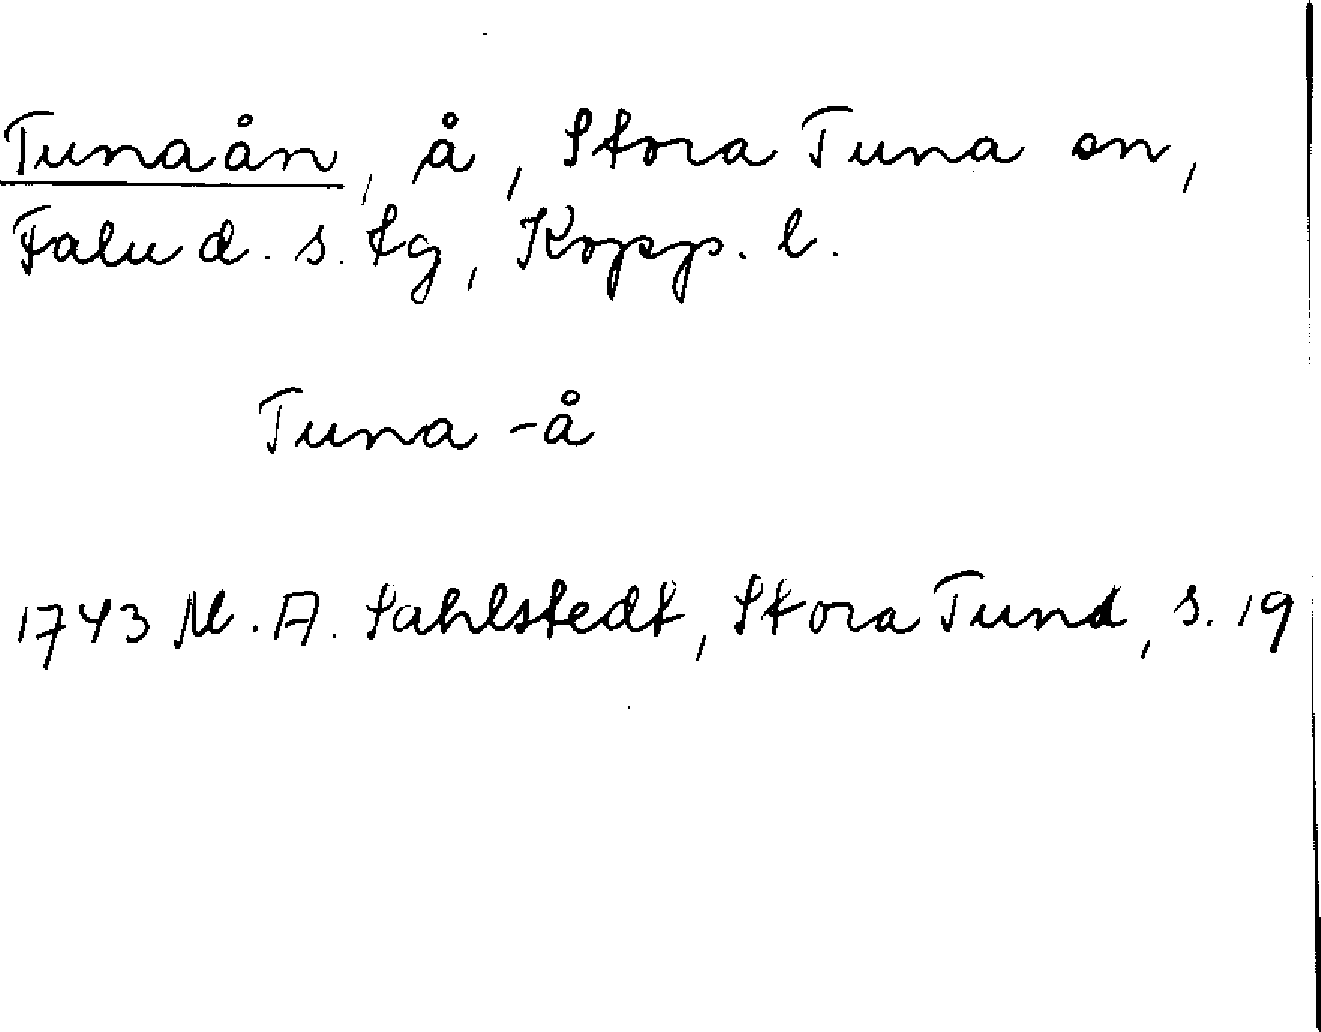 Tunaån, å, Stora Tuna sn,
Falu d. s. tg, Kopp. l.
Tuna -å
1743 M. A. Sahlstedt, Stora Tuna, s. 19